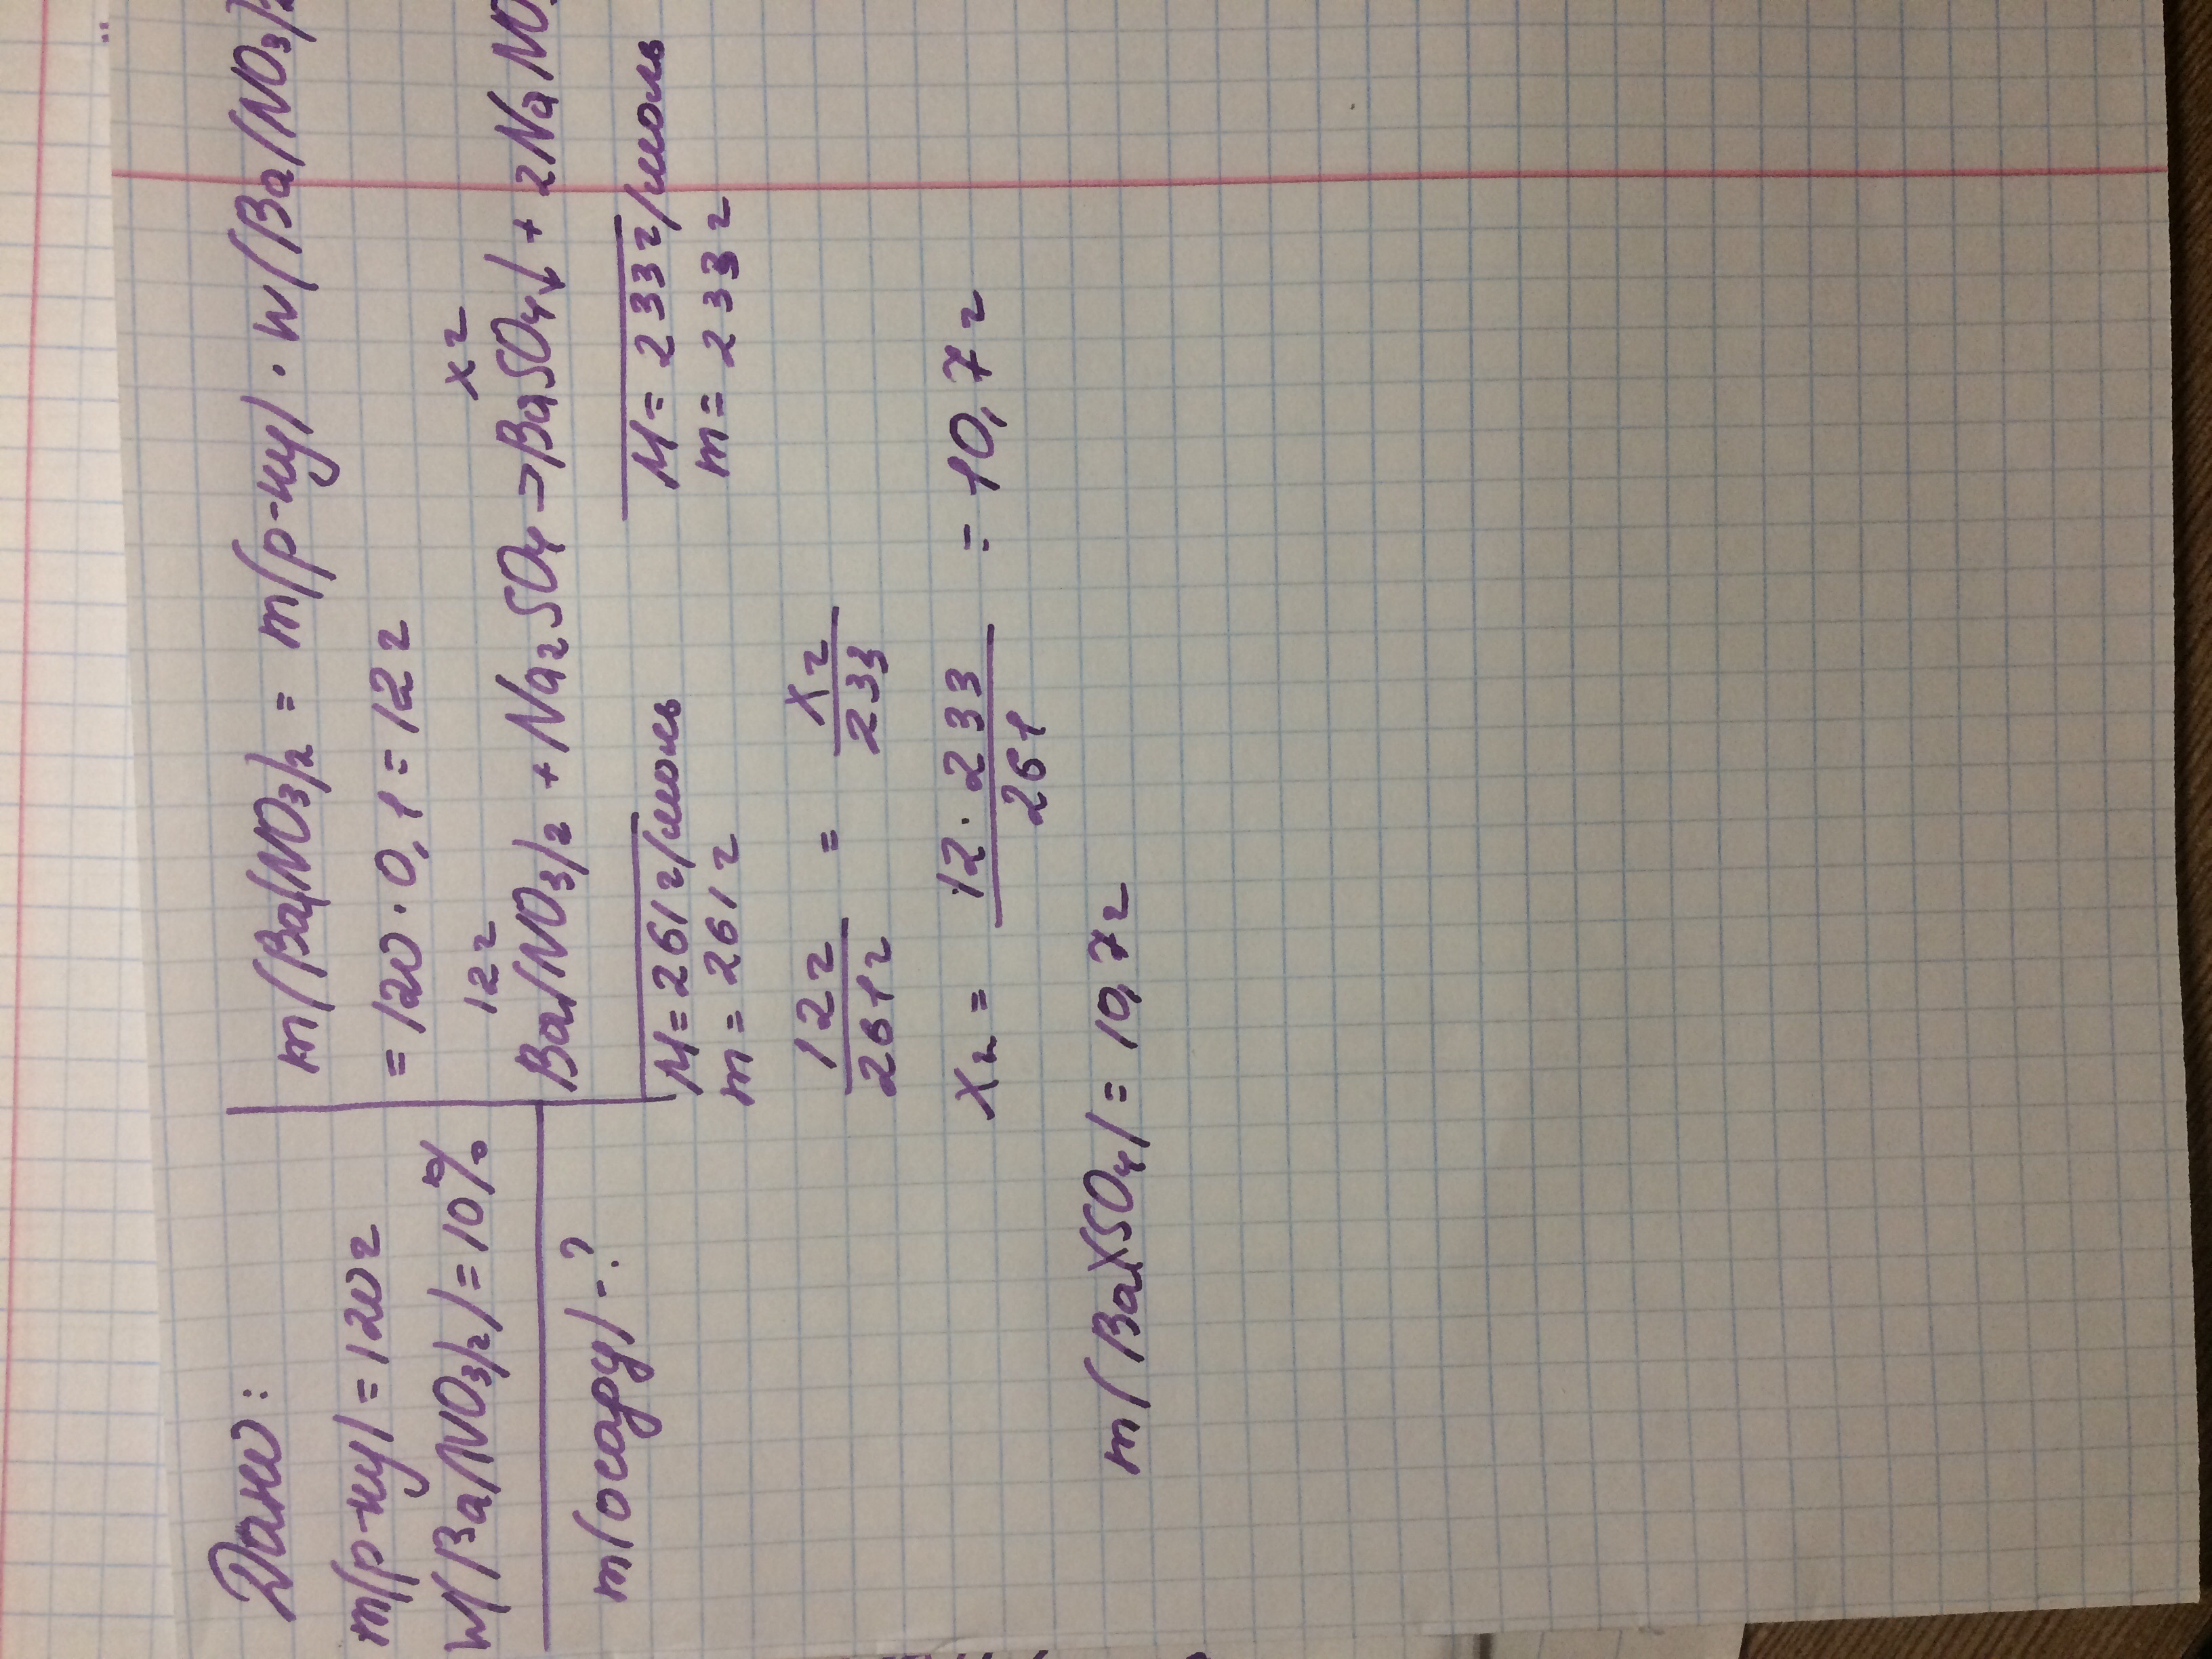 Дано:
m(р-ну) = 120 г
W(Ba(NO₃)₂) = 10%
m(осаду) - ?
m(Ba(NO₃)₂ = m(р-ну) · w(Ba(NO₃)₂
= 120 · 0,1 = 12 г
12 г x г
Ba(NO₃)₂ + Na₂SO₄ → BaSO₄↓ + 2NaNO₃
M = 261 г/моль M = 233 г/моль
m = 261 г m = 233 г
12 г / 261 г = x г / 233
x г = 12 · 233 / 261 = 10,7 г
m(BaSO₄) = 10,7 г